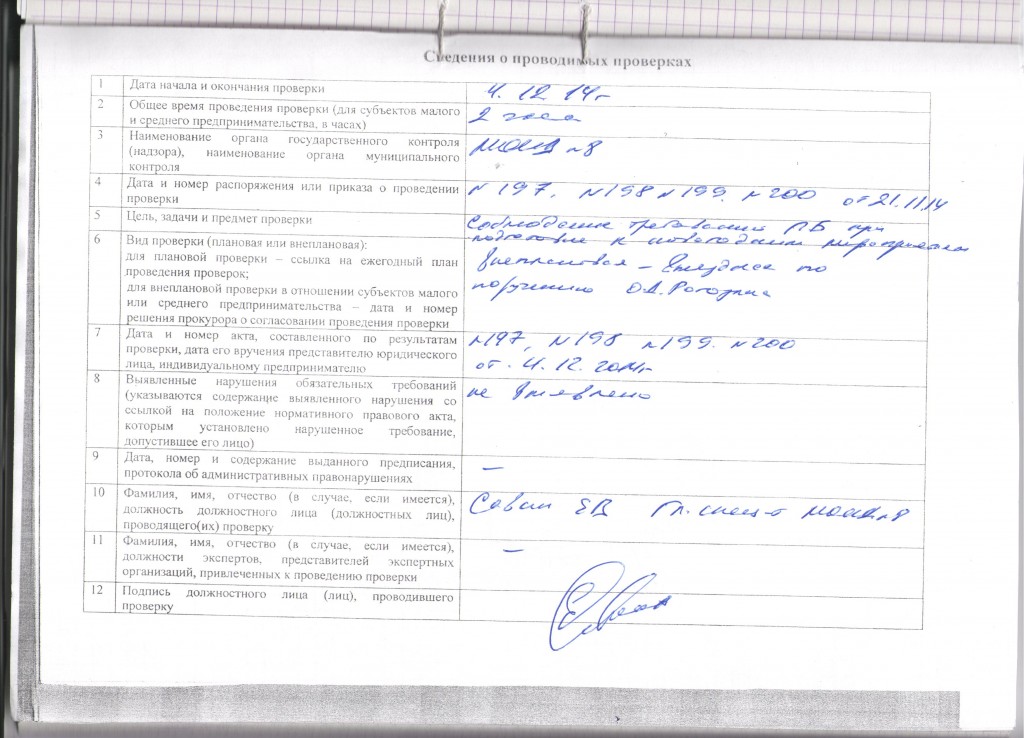 Сведения о проводимых проверках
1
Дата начала и окончания проверки
4. 12 14г
2
Общее время проведения проверки (для субъектов малого
и среднего предпринимательства, в часах)
2 часа
3
Наименование органа государственного контроля
(надзора), наименование органа муниципального
контроля
№8
4
Дата и номер распоряжения или приказа о проведении
проверки
№197, №198 №199. №200 от 21.11.14
5
Цель, задачи и предмет проверки
Соблюдение требований ПБ при
подготовке к новогодним мероприятиям
6
Вид проверки (плановая или внеплановая):
для плановой проверки – ссылка на ежегодный план
проведения проверок;
для внеплановой проверки в отношении субъектов малого
или среднего предпринимательства – дата и номер
решения прокурора о согласовании проведения проверки
Внеплановая – выездная по
поручению
7
Дата и номер акта, составленного по результатам
проверки, дата его вручения представителю юридического
лица, индивидуальному предпринимателю
№197, №198 №199. №200
от. 4. 12. 2014г
8
Выявленные нарушения обязательных требований
(указываются содержание выявленного нарушения со
ссылкой на положение нормативного правового акта,
которым установлено нарушенное требование,
допустившее его лицо)
не выявлено
9
Дата, номер и содержание выданного предписания,
протокола об административных правонарушениях
–
10
Фамилия, имя, отчество (в случае, если имеется),
должность должностного лица (должностных лиц),
проводящего(их) проверку
Савин ЕВ Гл. спец-т №8
11
Фамилия, имя, отчество (в случае, если имеется),
должности экспертов, представителей экспертных
организаций, привлеченных к проведению проверки
–
12
Подпись должностного лица (лиц), проводившего
проверку